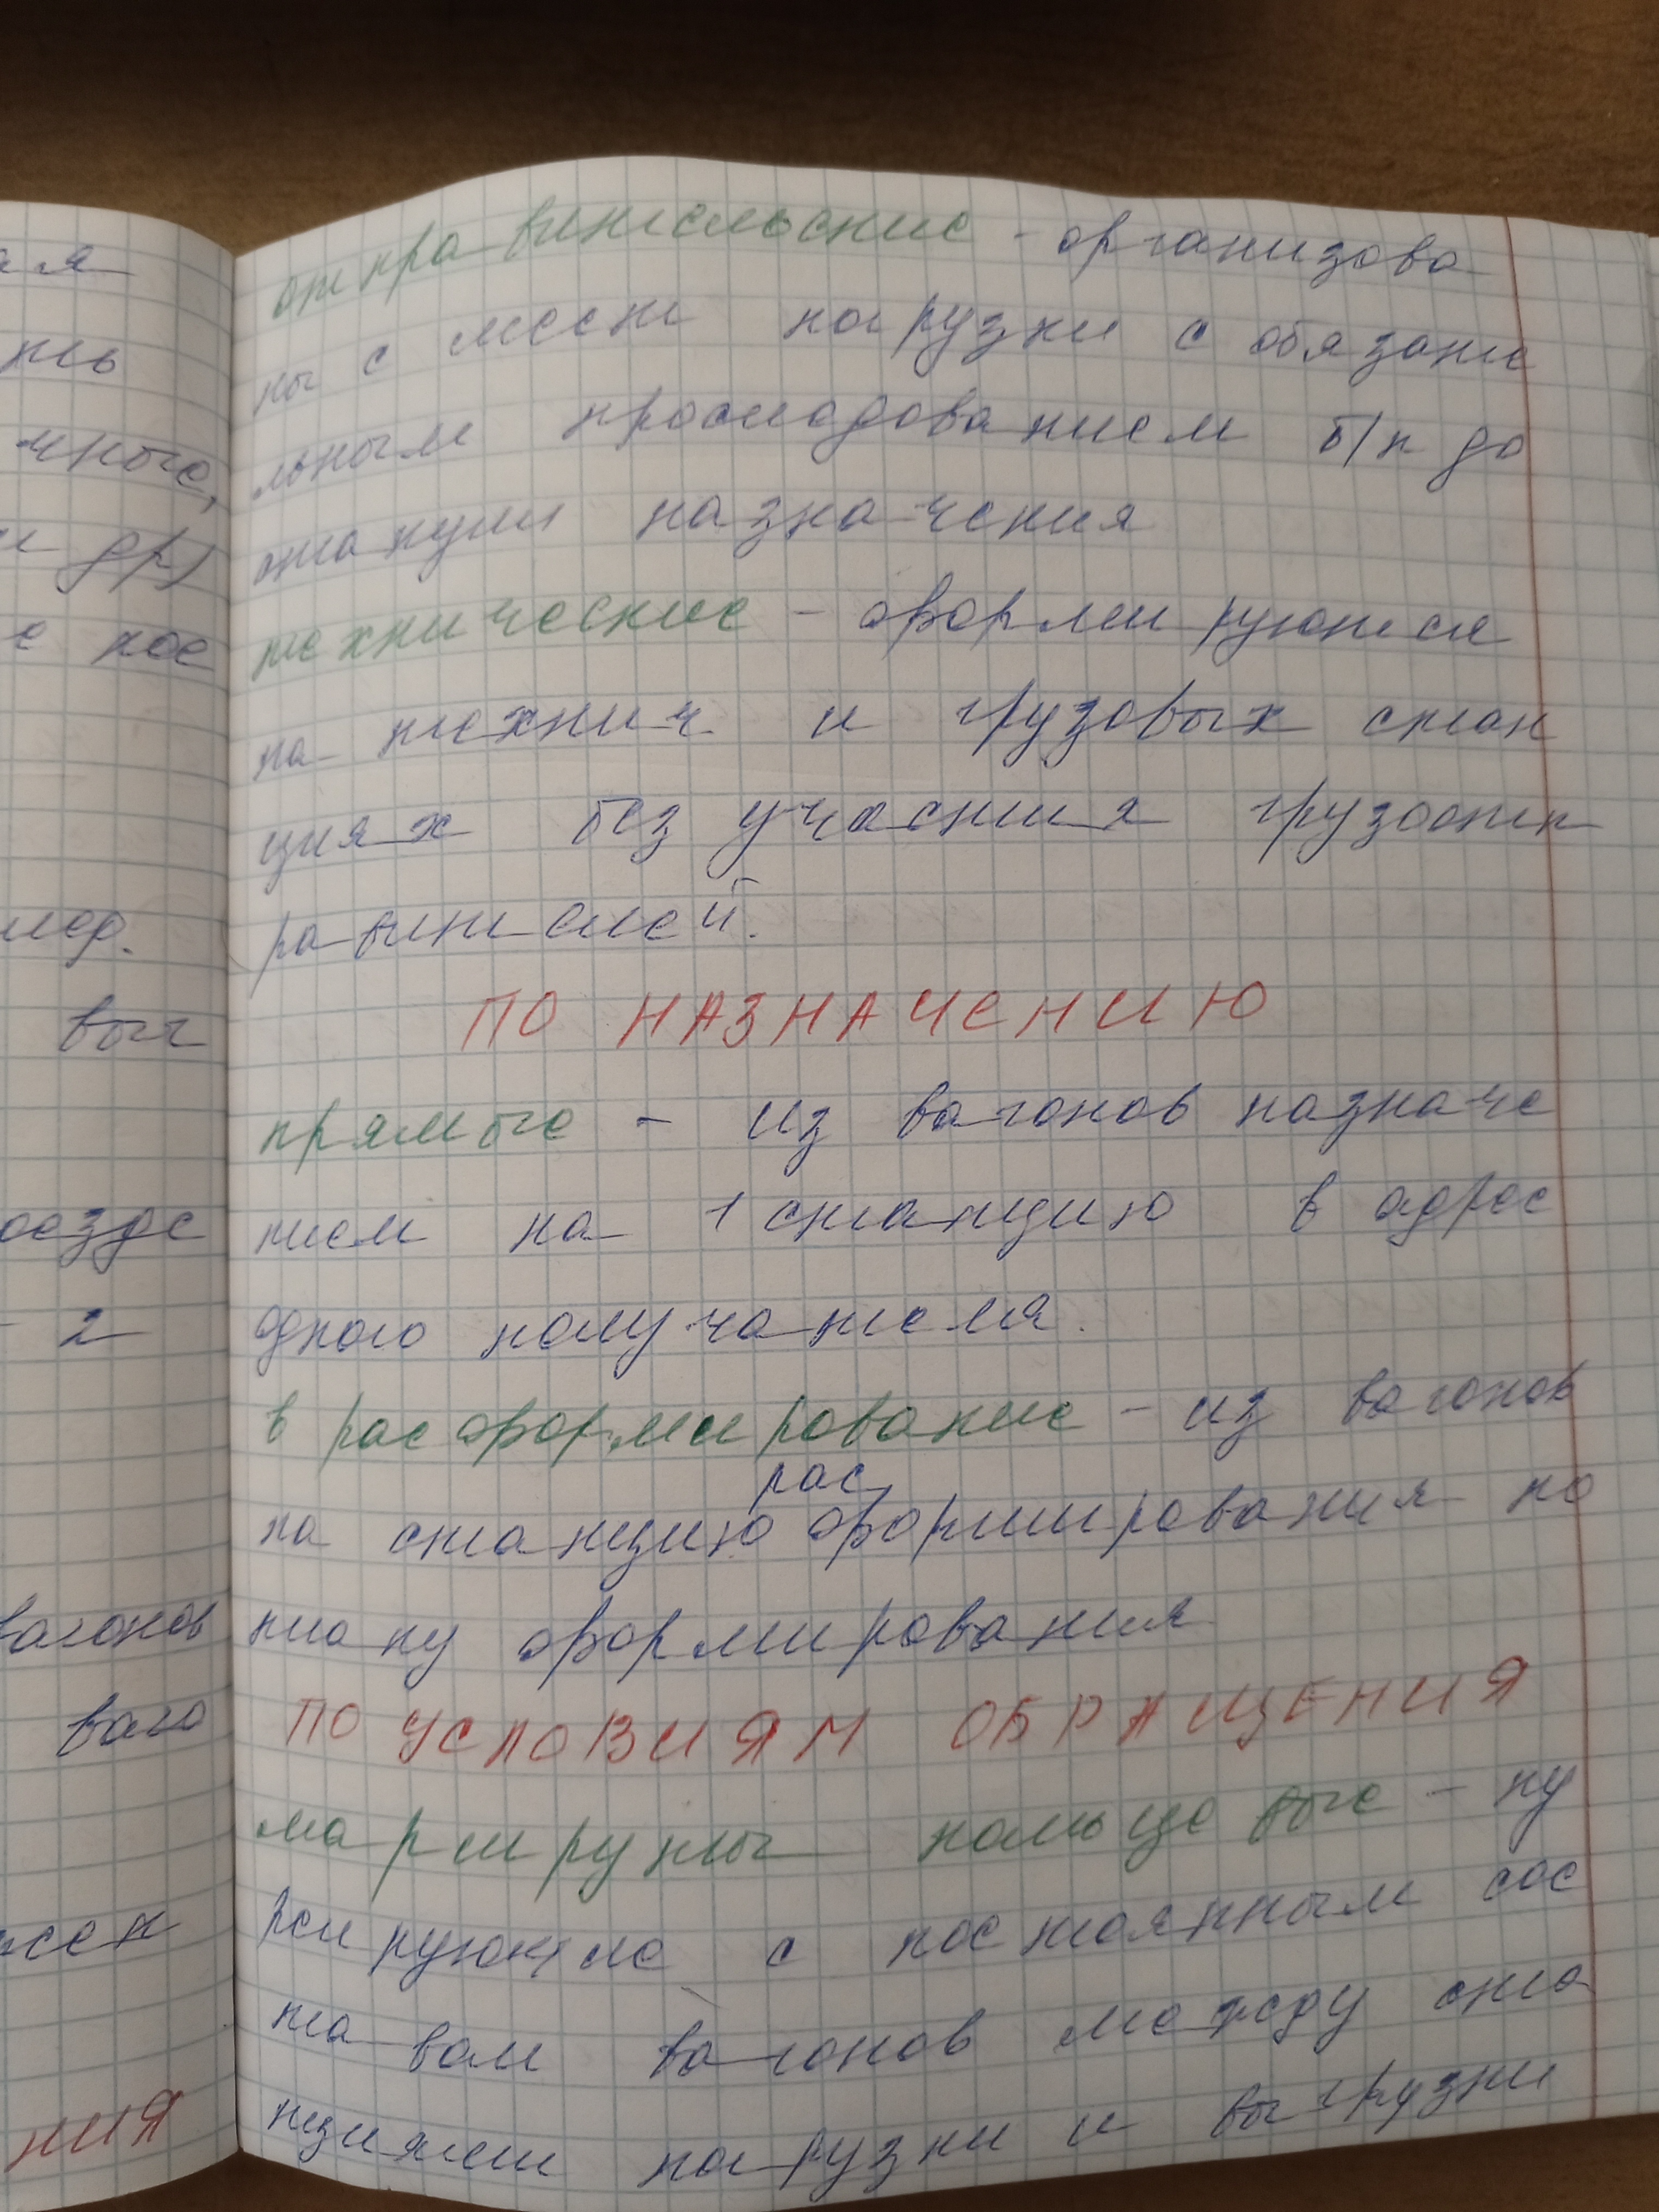 ая
ть
чные,
и др)
е пос
лед.
выг
оезде
- 2
вагонов
ваго
жен
НИЯ
отправительские - организова
ны с мест погрузки с обязате
льным проследованием б/п до
станции назначения
технические - формируются
на технич и грузовых стан
циях без участия грузоотп
равителей.
ПО НАЗНАЧЕНИЮ
прямые - из вагонов назначе
нием на 1 станцию в адрес
одного получателя.
в расформирование - из вагонов
рас
на станцию формирования по
плану формирования
ПО УСЛОВИЯМ ОБРАЩЕНИЯ
маршруты кольцевые - ку
рсирующие с постоянным сос
тавом вагонов между ста
нциями погрузки и выгрузки